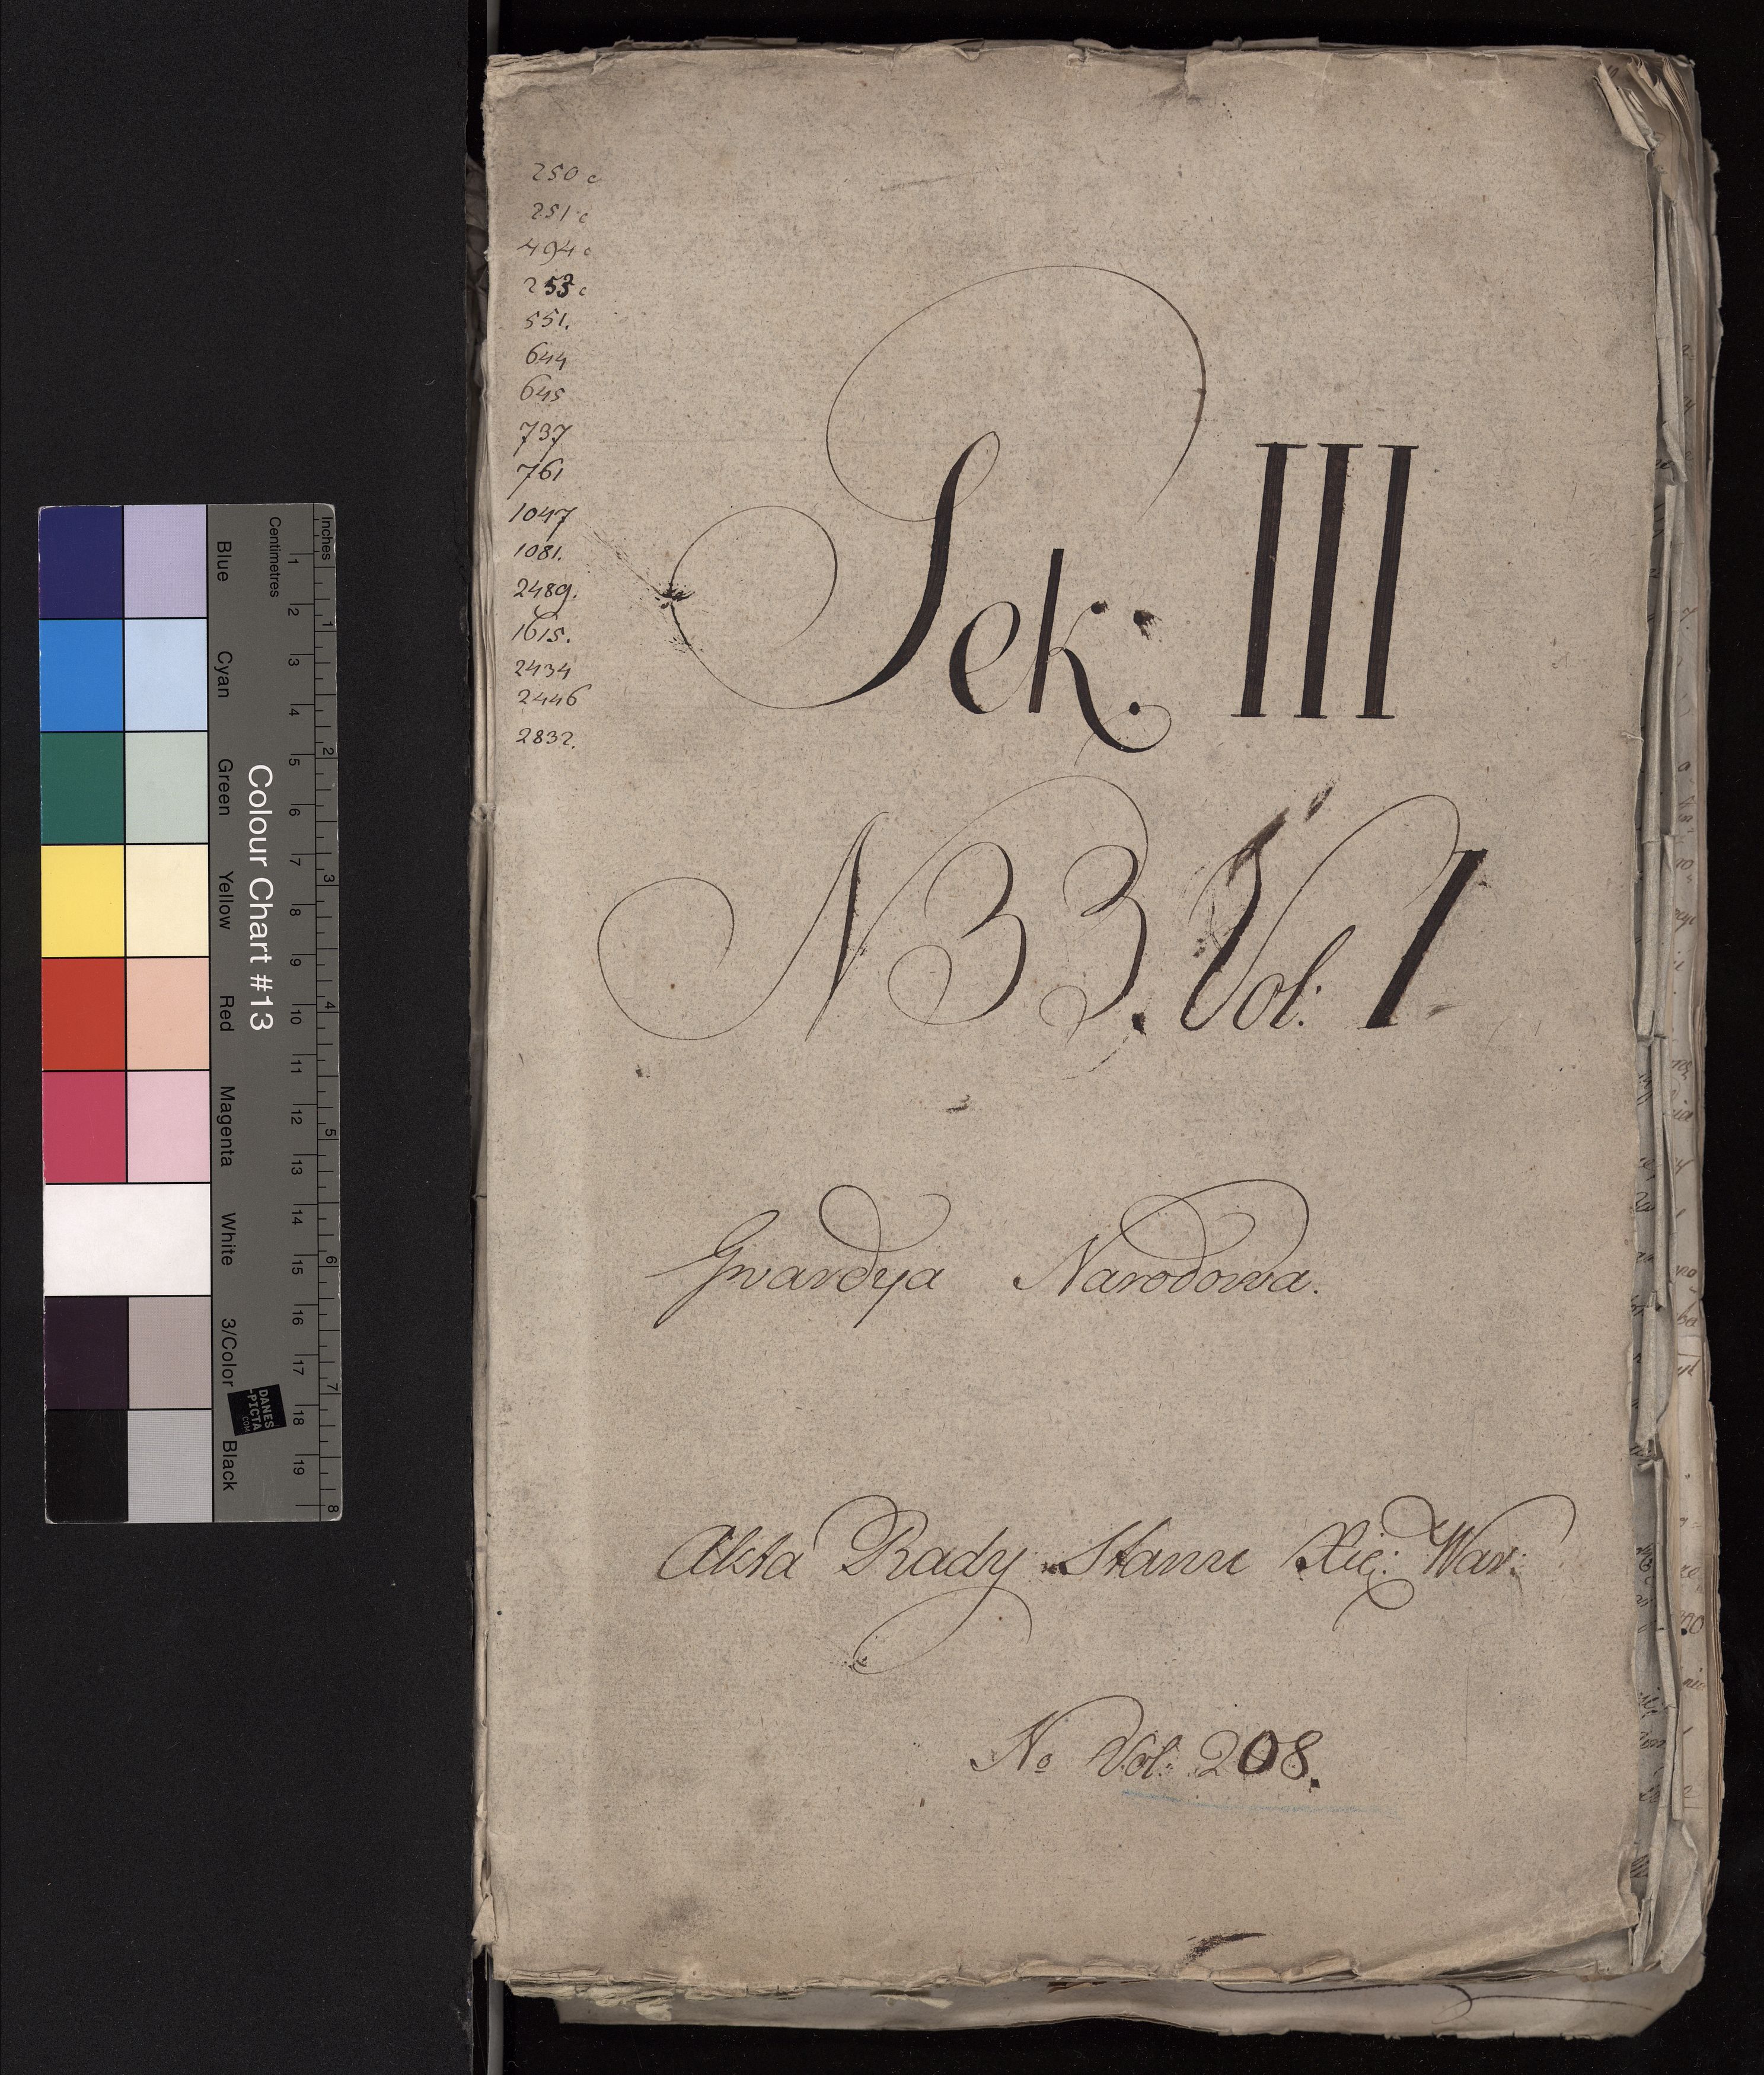 250 c
251 c
494 c
253 c
551.
644
645
737
761
1047
1081.
2489.
1615.
2434
2446
2832.
Sek: III
N 33. Vol: I
Gwardya Narodowa.
Akta Rady Stanu Xię: War:
No Vol: 208.
Inches
Centimetres
1 2 3 4 5 6 7 8 9 10 11 12 13 14 15 16 17 18 19
1 2 3 4 5 6 7 8
Colour Chart #13
Blue Cyan Green Yellow Red Magenta White 3/Color Black
DANES
-PICTA
.COM